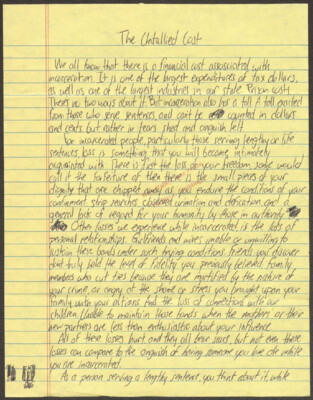 The Untallied Cost
We all know that there is a financial cost associated with
incarceration. It is one of the largest expenditures of tax dollars,
as well as one of the largest industries in our state. Prison costs
There's no two ways about it. But incarceration also has a toll. A toll exacted
from those who serve sentences, and can't be counted in dollars
and cents but rather in tears shed and anguish felt.
For incarcerated people, particularly those serving lengthy or life
sentences, loss is something that you will become intimately
acquainted with. There is first the loss of your freedom, some would
call it the forfeiture of, then there is the small pieces of your
dignity that are chipped away as you endure the conditions of your
confinement, strip searches, observed urination and defication, and a
general lack of regard for your humanity by those in authority.
Other losses we experience while incarcerated is the loss of
personal relationships. Girlfriends and wives unable or unwilling to
sustain these bonds under such trying conditions. Friends you discover
don't truly hold the level of fidelity you previously believed. Family
members who cut ties because they are mortified by the nature of
your crime, or angry at the shame or stress you brought upon your
family with your actions. And the loss of connections with our
children. Unable to maintain those bonds when the mothers or their
new partners are less than enthusiastic about your influence.
All of these losses hurt, and they all bear scars, but not even these
losses can compare to the anguish of having someone you love die while
you are incarcerated.
As a person serving a lengthy sentence, you think about it, while